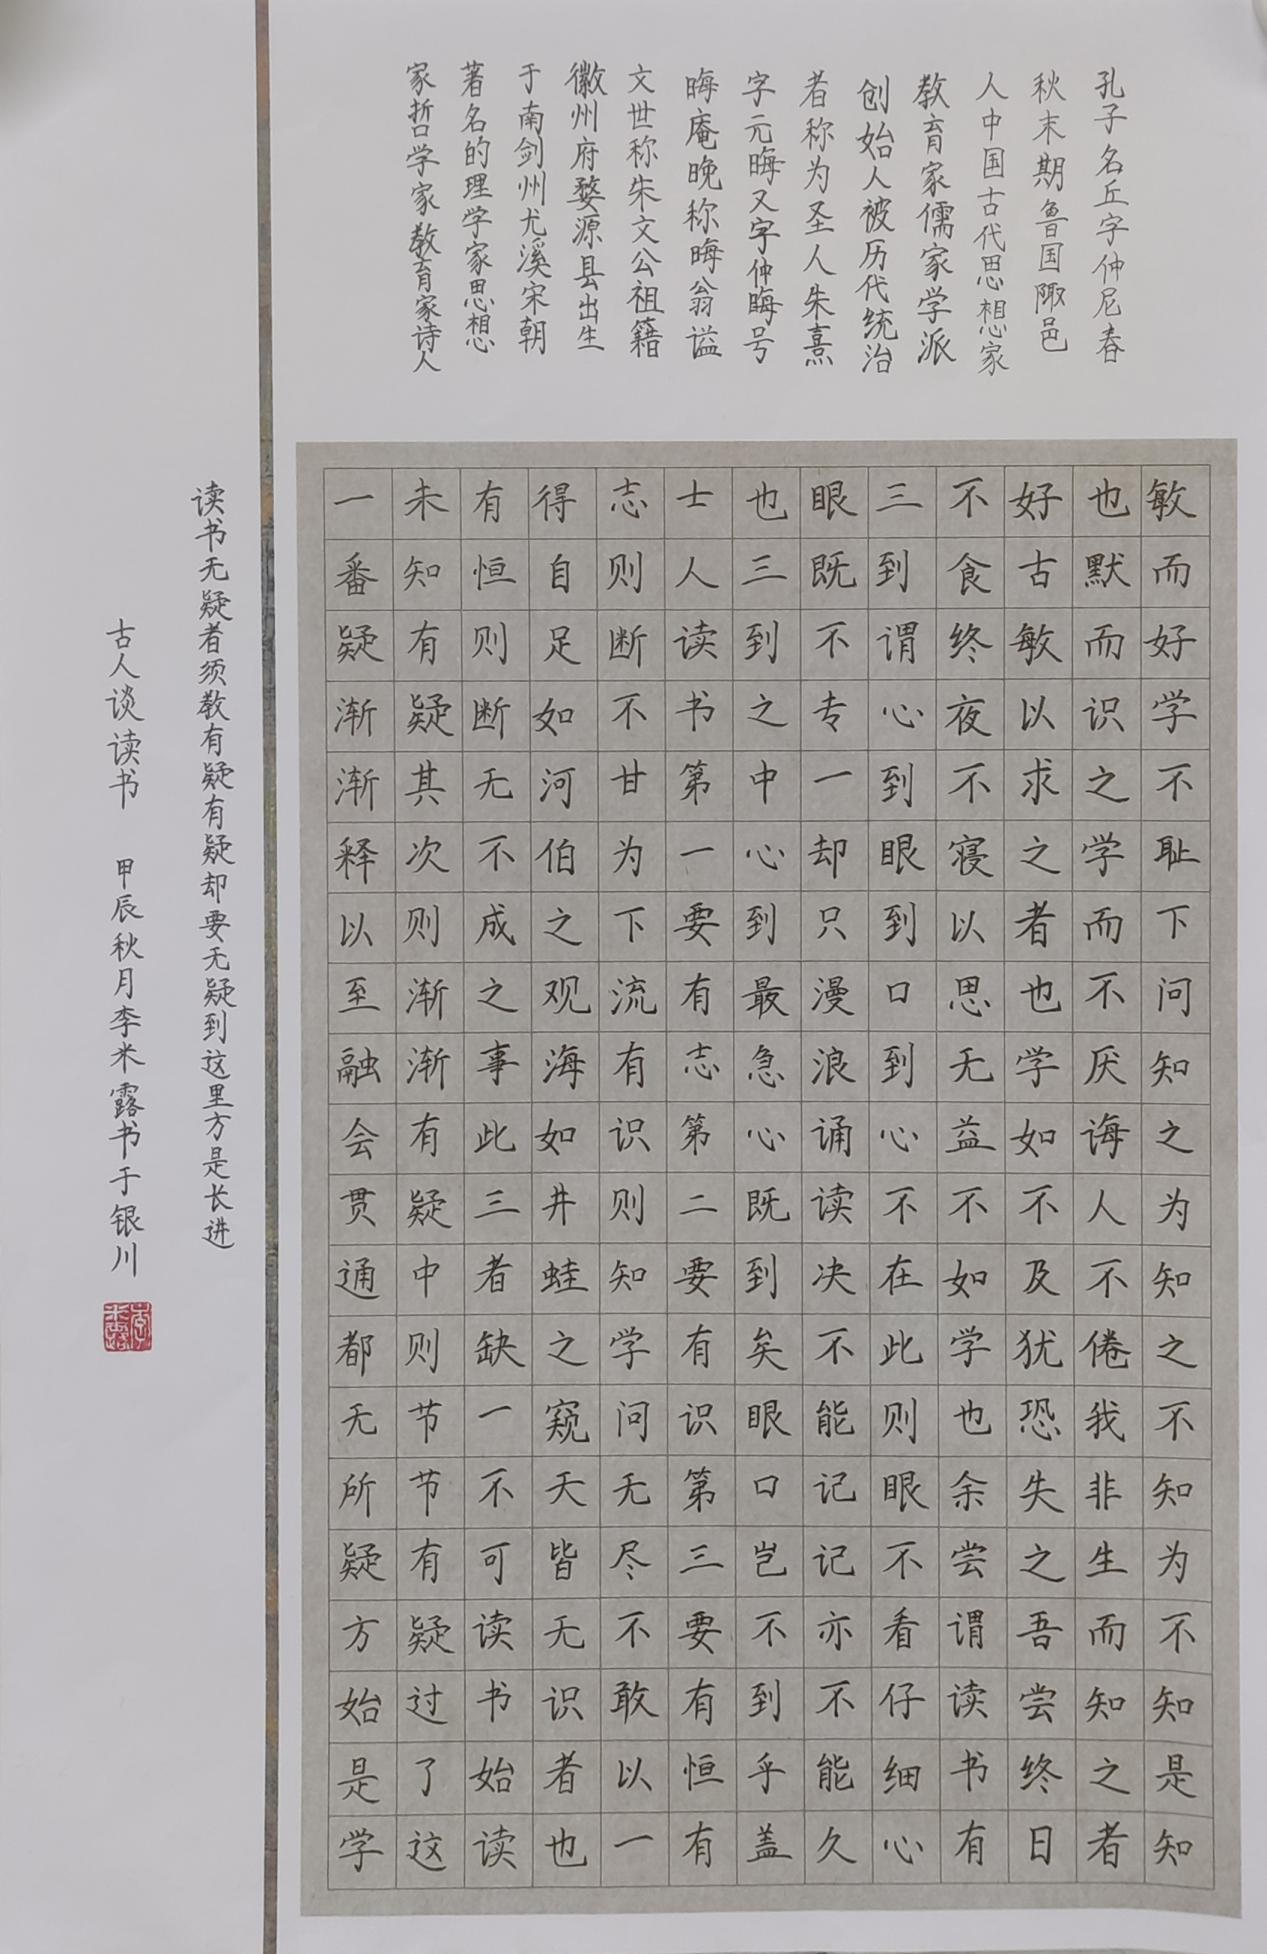 孔子名丘字仲尼春
秋末期鲁国陬邑
人中国古代思想家
教育家儒家学派
创始人被历代统治
者称为圣人朱熹
字元晦又字仲晦号
晦庵晚称晦翁谥
文世称朱文公祖籍
徽州府婺源县出生
于南剑州尤溪宋朝
著名的理学家思想
家哲学家教育家诗人
敏而好学不耻下问知之为知之不知为不知是知
也默而识之学而不厌诲人不倦我非生而知之者
好古敏以求之者也学如不及犹恐失之吾尝终日
不食终夜不寝以思无益不如学也余尝谓读书有
三到谓心到眼到口到心不在此则眼不看仔细心
眼既不专一却只漫浪诵读决不能记记亦不能久
也三到之中心到最急心既到矣眼口岂不到乎盖
士人读书第一要有志第二要有识第三要有恒有
志则断不甘为下流有识则知学问无尽不敢以一
得自足如河伯之观海如井蛙之窥天皆无识者也
有恒则断无不成之事此三者缺一不可读书始读
未知有疑其次则渐渐有疑中则节节有疑过了这
一番疑渐渐释以至融会贯通都无所疑方始是学
读书无疑者须教有疑有疑却要无疑到这里方是长进
古人谈读书 甲辰秋月李米露书于银川
李米露